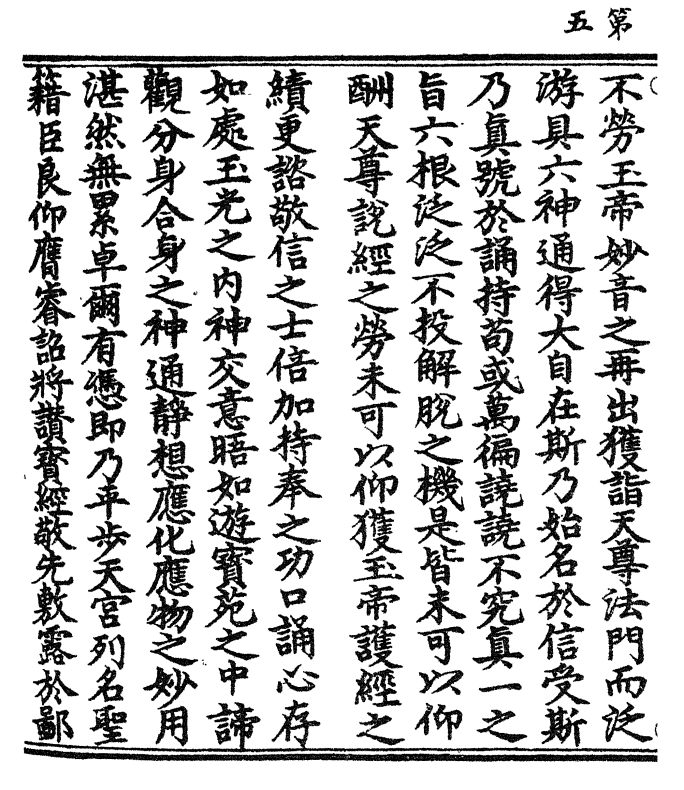 第五
不勞玉帝妙音之再出獲詣天尊法門而泛
游具六神通得大自在斯乃始名於信受斯
乃真號於誦持苟或萬徧譊譊不究真一之
旨六根泛泛不投解脫之機是皆未可以仰
酬天尊說經之勞未可以仰獲玉帝護經之
績更諮敬信之士倍加持奉之功口誦心存
如處玉光之内神交意晤如遊寶苑之中諦
觀分身合身之神通靜想應化應物之妙用
湛然無累卓爾有憑即乃平步天宮列名聖
籍臣良仰膺睿詔將讚寶經敬先敷露於鄙